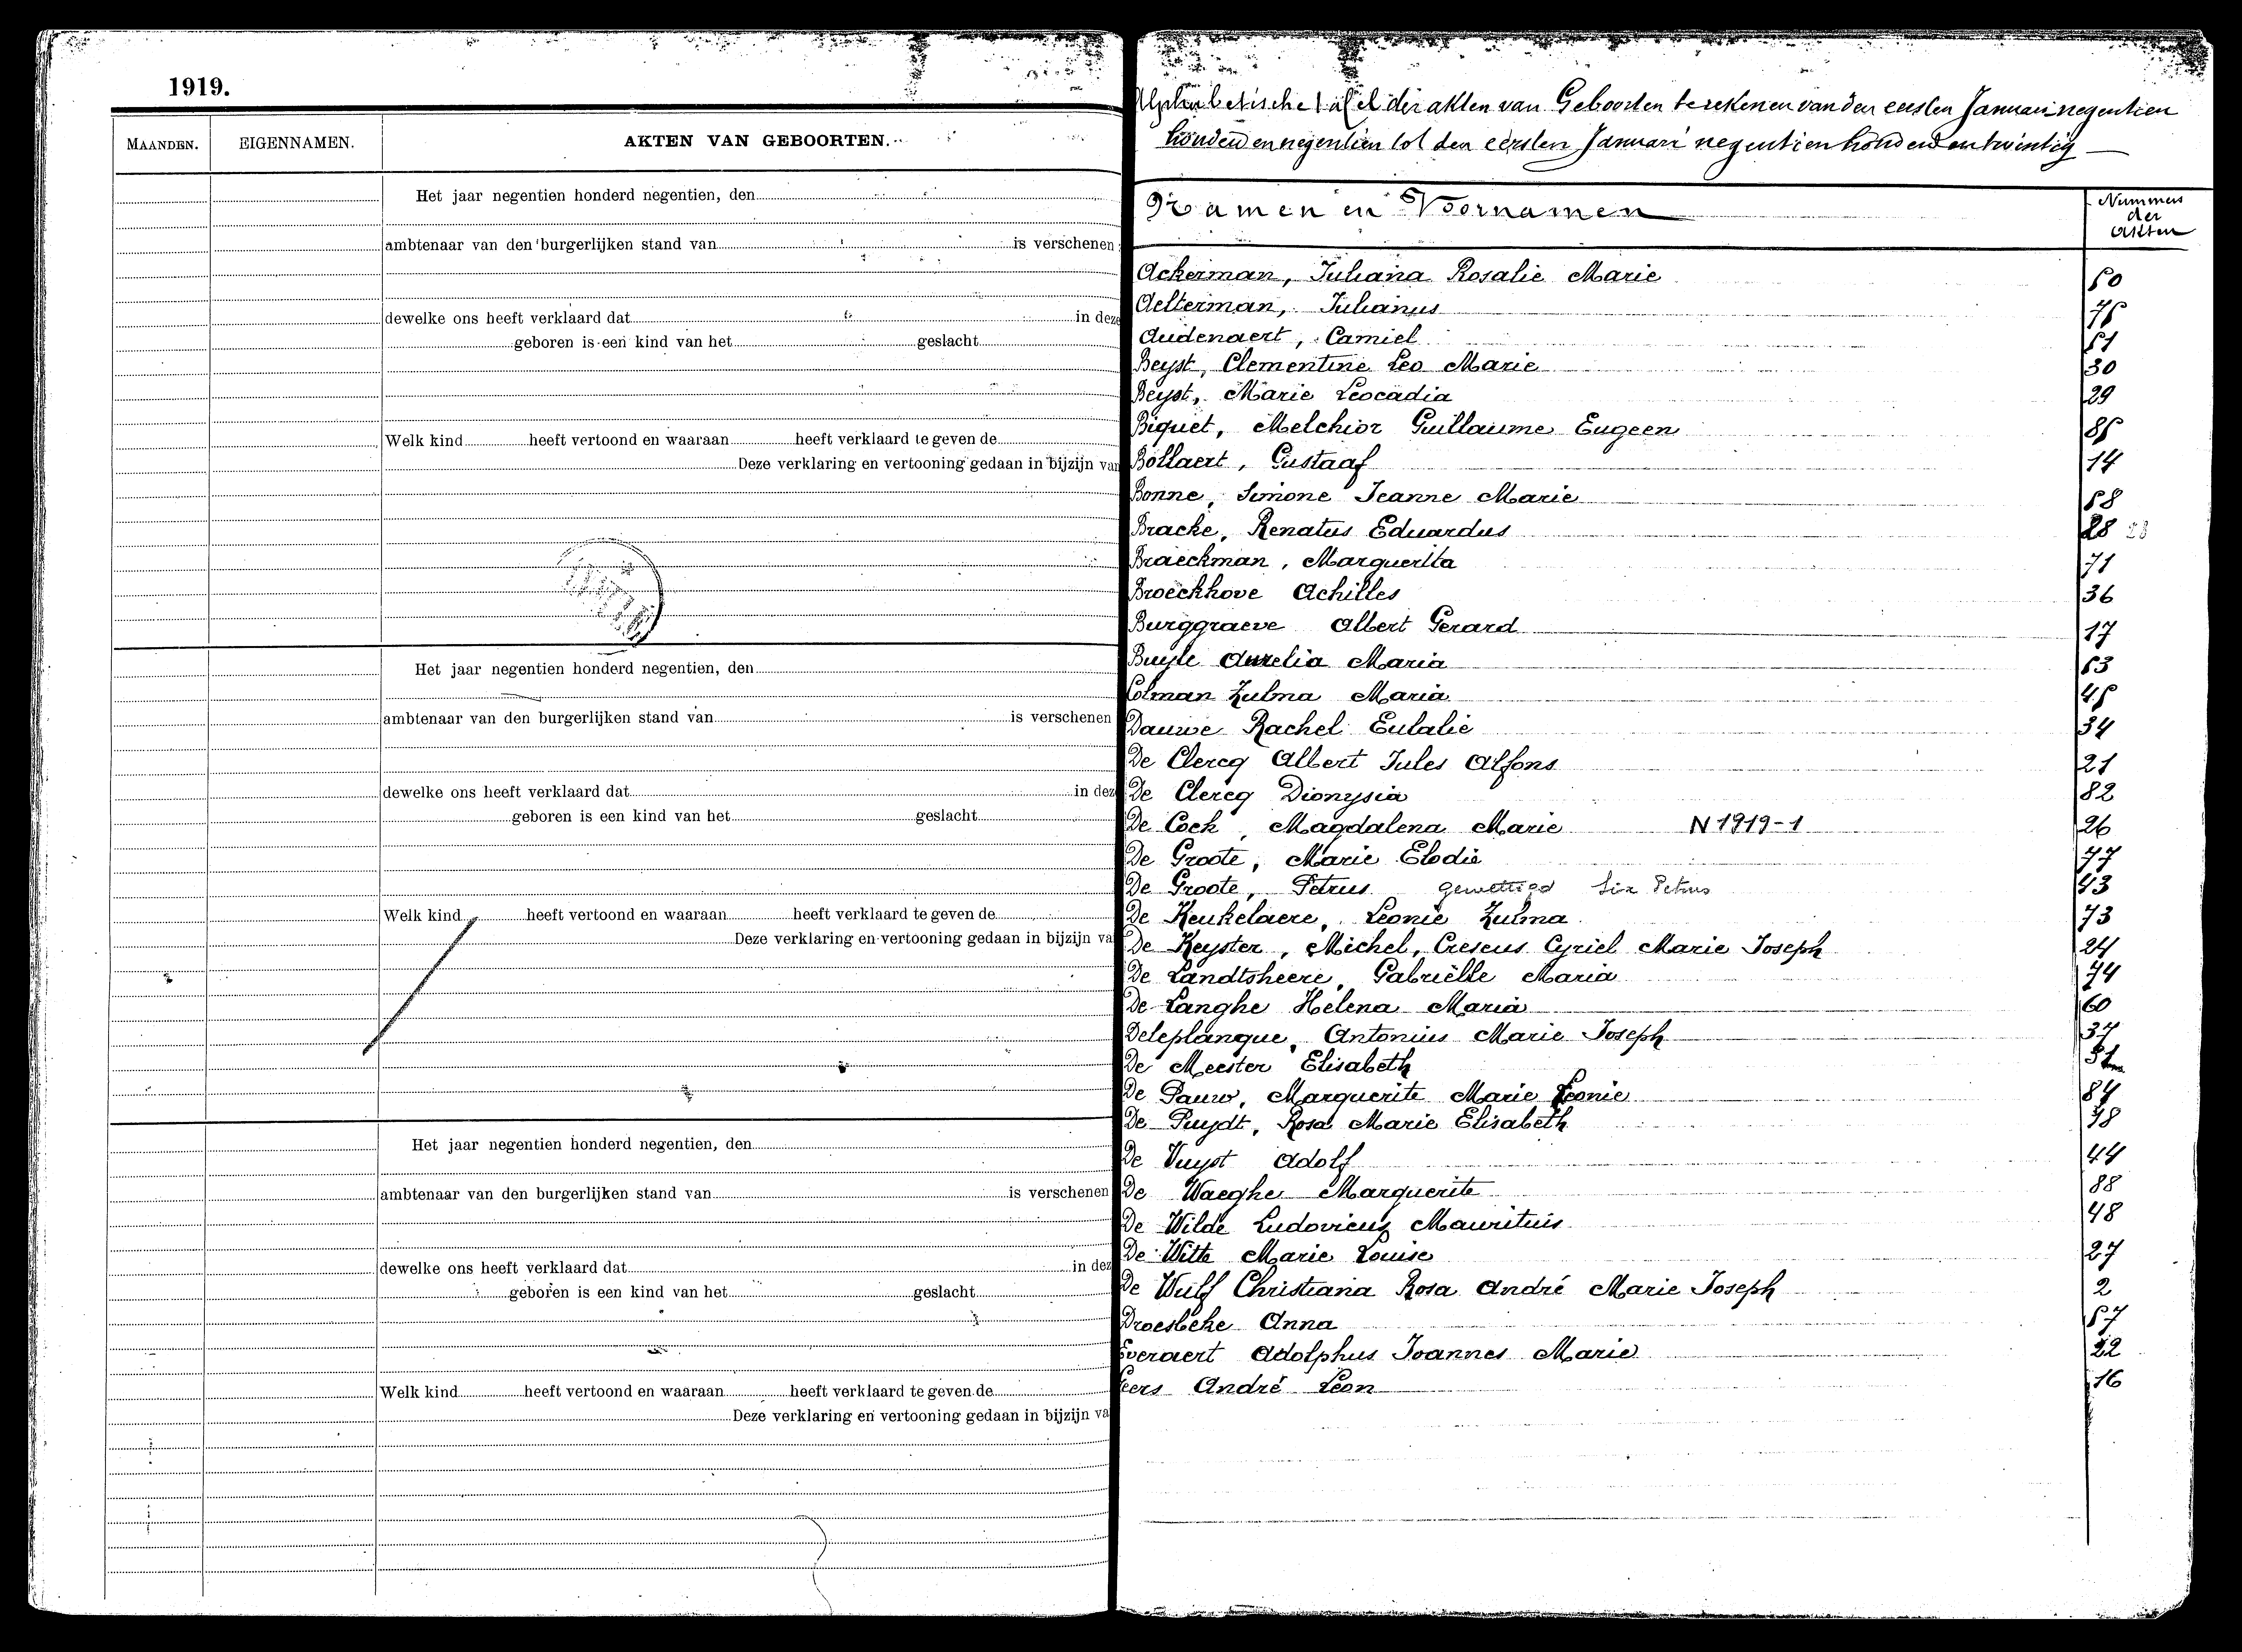 1919.
MAANDEN. EIGENNAMEN. AKTEN VAN GEBOORTEN.
Het jaar negentien honderd negentien, den
ambtenaar van den burgerlijken stand van is verschenen
dewelke ons heeft verklaard dat in deze
geboren is een kind van het geslacht
Welk kind heeft vertoond en waaraan heeft verklaard te geven de
Deze verklaring en vertooning gedaan in bijzijn van
Het jaar negentien honderd negentien, den
ambtenaar van den burgerlijken stand van is verschenen
dewelke ons heeft verklaard dat in dez
geboren is een kind van het geslacht
Welk kind heeft vertoond en waaraan heeft verklaard te geven de
Deze verklaring en vertooning gedaan in bijzijn va
Het jaar negentien honderd negentien, den
ambtenaar van den burgerlijken stand van is verschenen
dewelke ons heeft verklaard dat in dez
geboren is een kind van het geslacht
Welk kind heeft vertoond en waaraan heeft verklaard te geven de
Deze verklaring en vertooning gedaan in bijzijn va
Alphabetische tafel der akten van Geboorten te rekenen van den eersten Januari negentien
honderd en negentien tot den eersten Januari negentien honderd en twintig
Namen en Voornamen Nummers der Akten
Ackerman, Juliana Rosalie Marie 50
Aelterman, Julianus 75
Audenaert, Camiel 51
Beyst, Clementine Leo Marie 30
Beyst, Marie Leocadia 29
Biquet, Melchior Guillaume Eugeen 85
Bollaert, Gustaaf 14
Bonne, Simone Jeanne Marie 58
Bracke, Renatus Eduardus 28 23
Braeckman, Marguerita 71
Broeckhove Achilles 36
Burggraeve Albert Gerard 17
Buyle Aurelia Maria 53
Colman Zulma Maria 45
Dauwe Rachel Eulalie 34
De Clercq Albert Jules Alfons 21
De Clercq Dionysia 82
De Cock, Magdalena Marie N 1919-1 26
De Groote, Marie Elodie 77
De Groote, Petrus gewettigd Six Petrus 43
De Keukelaere, Leonie Zulma 73
De Keyster, Michel, Creseus Cyriel Marie Joseph 24
De Landtsheere, Gabriëlle Maria 74
De Langhe Helena Maria 60
Deleplanque, Antonius Marie Joseph 37
De Meester Elisabeth
De Pauw, Marguerite Marie Leonie 84
De Puydt, Rosa Marie Elisabeth 78
De Vuyst Adolf 44
De Waeghe Marguerite 88
De Wilde Ludovicus Mauritius 48
De Witte Marie Louise 27
De Wulf Christiana Rosa André Marie Joseph 2
Droesbeke Anna 57
Everaert Adolphus Joannes Marie 22
eers André Leon 16